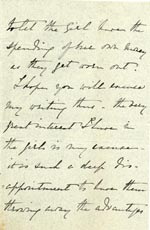 to let the girl have the
spending of her own money
as they get over out.
I hope you will excuse
my writing this – the very
great interest I have in
the girls is my excuse –
it is such a deep dis-
appointment to have them
throwing away the advantages